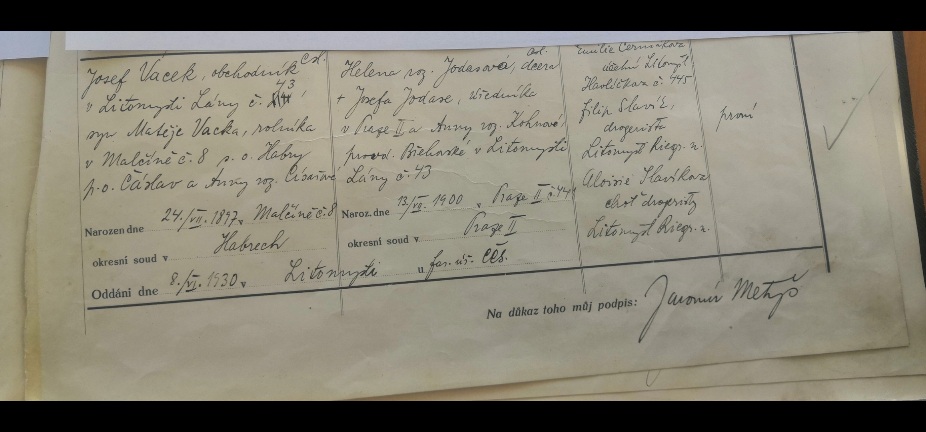 Josef Vacek, obchodník čsl.
v Litomyšli Lány č. 43
syn Matěje Vacka, rolníka
v Malčíně č. 8 p. o. Habry
p. o. Čáslav a Anny roz. Císařové
Narozen dne 24./VII. 1897 v Malčíně č. 8
okresní soud v Habrech
Oddáni dne 8./VI. 1930 v Litomyšli u far. úř. čěs.
Helena roz. Jodasová, dcera čsl.
+ Josefa Jodase, úředníka
v Praze II a Anny roz. Kohnové
provd. Bielovské v Litomyšli
Lány č. 43
Naroz. dne 13/VII. 1900 v Praze II č. 441
okresní soud v Praze II
Emilie Čermáková
Litomyšl
Havlíčkova č. 445
Filip Slavík,
drogerista
Litomyšl Riegr. n.
Aloisie Slavíková
choť drogeristy
Litomyšl Riegr. n.
první
Na důkaz toho můj podpis: Jaromír